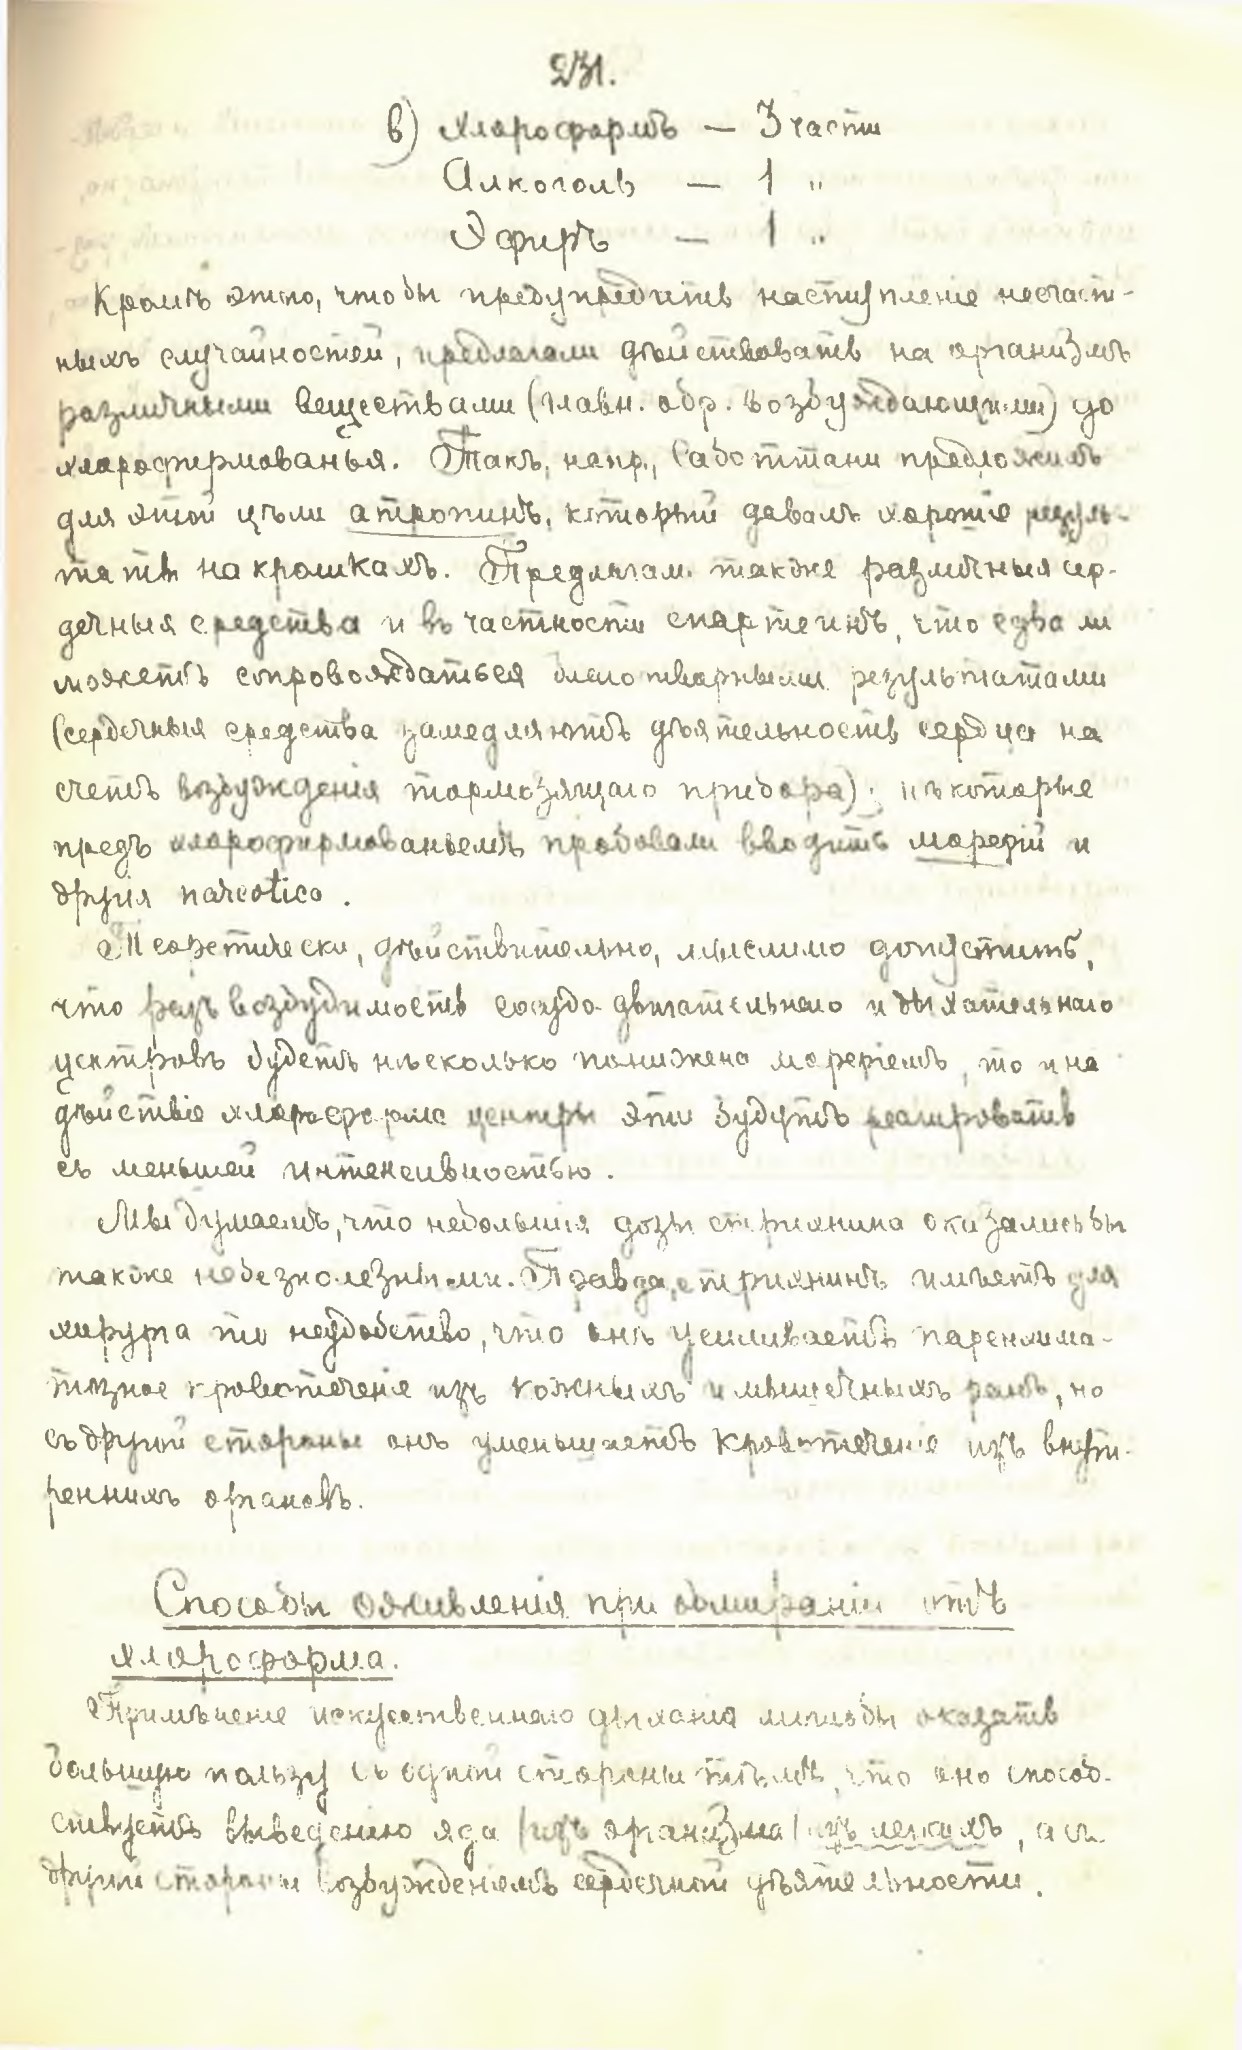 231.
в) Хлороформъ — 3 части
Алкоголь — 1 "
Эфиръ — 1 "
Кромѣ этого, чтобы предупредить наступленіе несчаст-
ныхъ случайностей, предлагали дѣйствовать на организмъ
различными веществами (главн. обр. возбуждающими) до
хлороформованья. Такъ, напр., предложилъ
для этой цѣли атропинъ, который давалъ хорошіе резуль-
таты на кроликахъ. Предлагали также различныя сер-
дечныя средства и въ частности спартеинъ, что едва ли
можетъ сопровождаться благотворными результатами
(сердечныя средства замедляютъ дѣятельность сердца на
счетъ возбужденія тормозящаго прибора); нѣкоторые
предъ хлороформованьемъ пробовали вводить морфій и
другія narcotica.
Теоретически, дѣйствительно, мыслимо допустить,
что разъ возбудимость сосудо-двигательнаго и дыхательнаго
центровъ будетъ нѣсколько понижена морфіемъ, то и на
дѣйствіе хлороформа центры эти будутъ реагировать
съ меньшей интенсивностью.
Мы думаемъ, что небольшія дозы стрихнина оказались бы
также небезполезными. Правда, стрихнинъ имѣетъ для
хирурга то неудобство, что онъ усиливаетъ паренхима-
тозное кровотеченіе изъ кожныхъ и мышечныхъ ранъ, но
съ другой стороны онъ уменьшаетъ кровотеченіе изъ внут-
реннихъ органовъ.
Способы оживленія при обмираніи отъ
хлороформа.
Примѣненіе искусственнаго дыханія могло бы оказать
большую пользу съ одной стороны тѣмъ, что оно способ-
ствуетъ выведенію яда (изъ организма) изъ легкихъ, а съ
другой стороны возбужденіемъ сердечной дѣятельности.